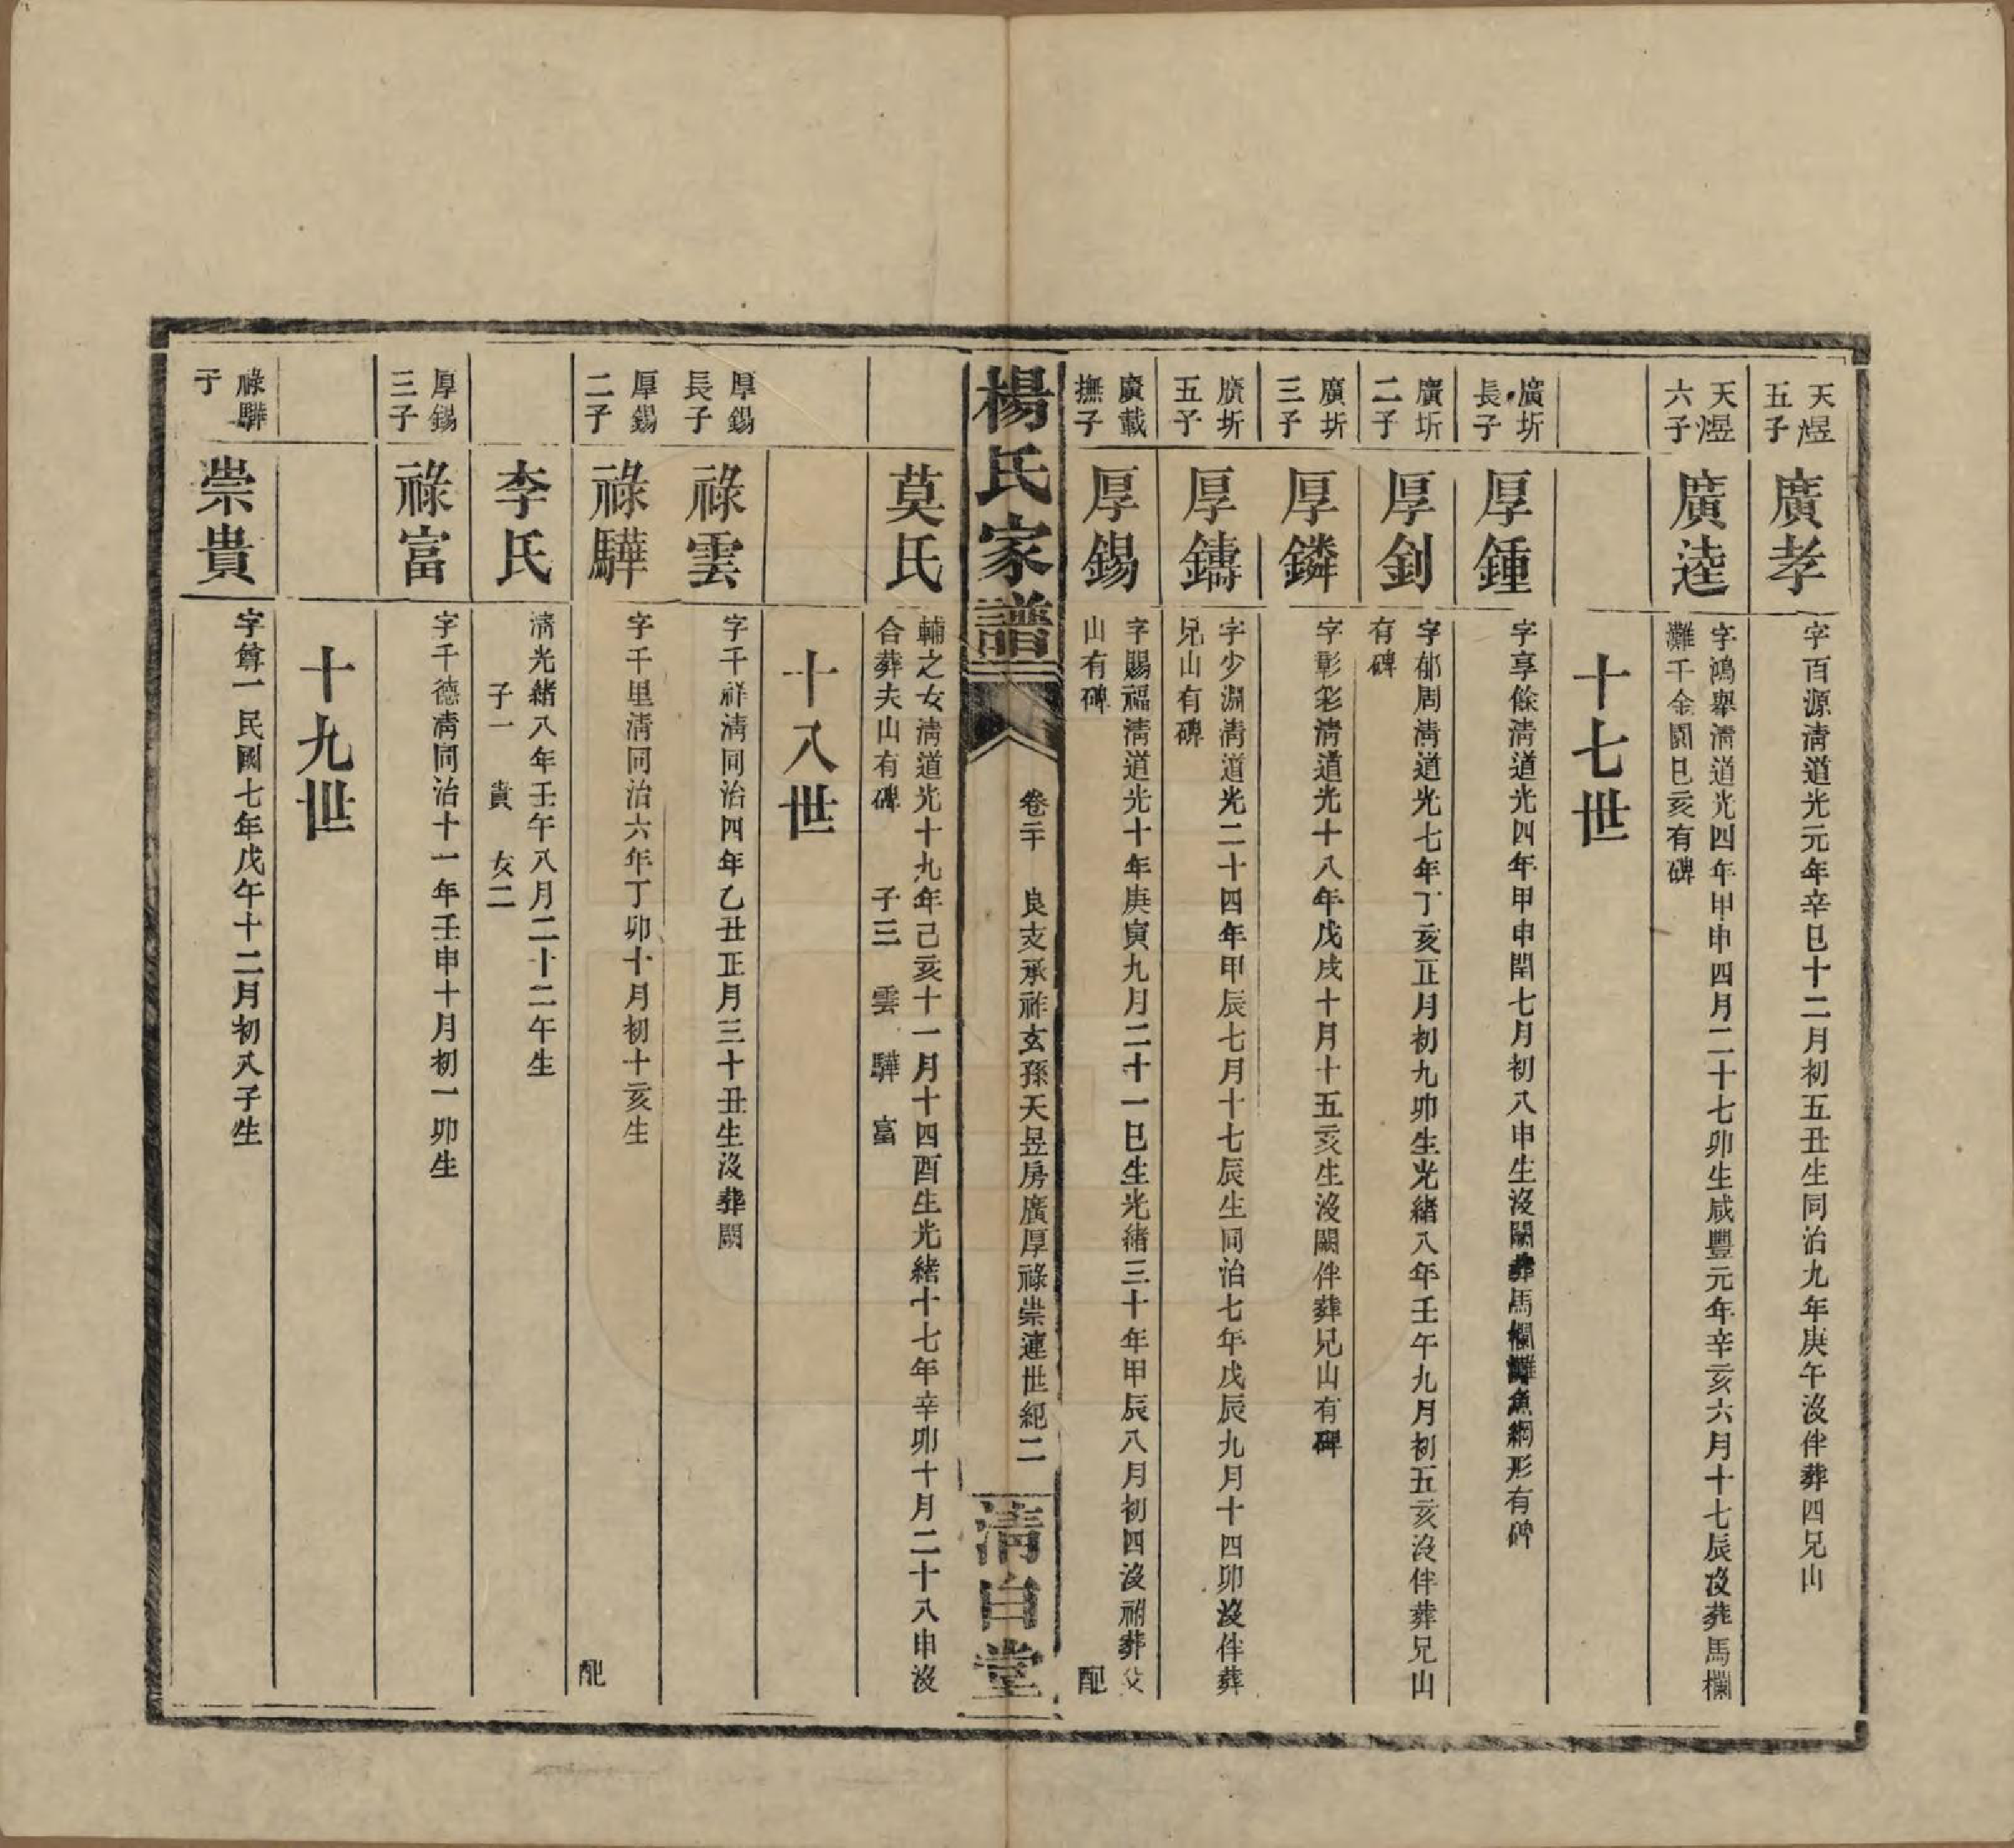 天煜
五子
廣孝
字百源淸道光元年辛巳十二月初五丑生同治九年庚午沒伴葬四兄山
天煜
六子
廣逵
字鴻舉淸道光四年甲申四月二十七卯生咸豐元年辛亥六月十七辰沒葬馬欄
灘千金園巳亥有碑
十七世
廣圻
長子
厚鍾
字享餘淸道光四年甲申閏七月初八申生沒闕葬馬欄灘魚網形有碑
廣圻
二子
厚釗
字郁周淸道光七年丁亥正月初九卯生光緒八年壬午九月初五亥沒伴葬兄山
有碑
廣圻
三子
厚鏻
字彰彩淸道光十八年戊戌十月十五亥生沒闕伴葬兄山有碑
廣圻
五子
厚鑄
字少淵淸道光二十四年甲辰七月十七辰生同治七年戊辰九月十四卯沒伴葬
兄山有碑
廣載
撫子
厚錫
字賜福淸道光十年庚寅九月二十一巳生光緒三十年甲辰八月初四沒祔葬父
山有碑 配
楊氏家譜
卷二十 良支承祚玄孫天昱房廣厚祿崇連世紀二
淸白堂
莫氏
輔之女淸道光十九年己亥十一月十四酉生光緒十七年辛卯十月二十八申沒
合葬夫山有碑 子三 雲 驊 富
十八世
厚錫
長子
祿雲
字千祥淸同治四年乙丑正月三十丑生沒葬闕
厚錫
二子
祿驊
字千里淸同治六年丁卯十月初十亥生
配
李氏
淸光緒八年壬午八月二十二午生
子一 貴 女二
厚錫
三子
祿富
字千德淸同治十一年壬申十月初一卯生
十九世
祿驊
子
崇貴
字尊一民國七年戊午十二月初八子生